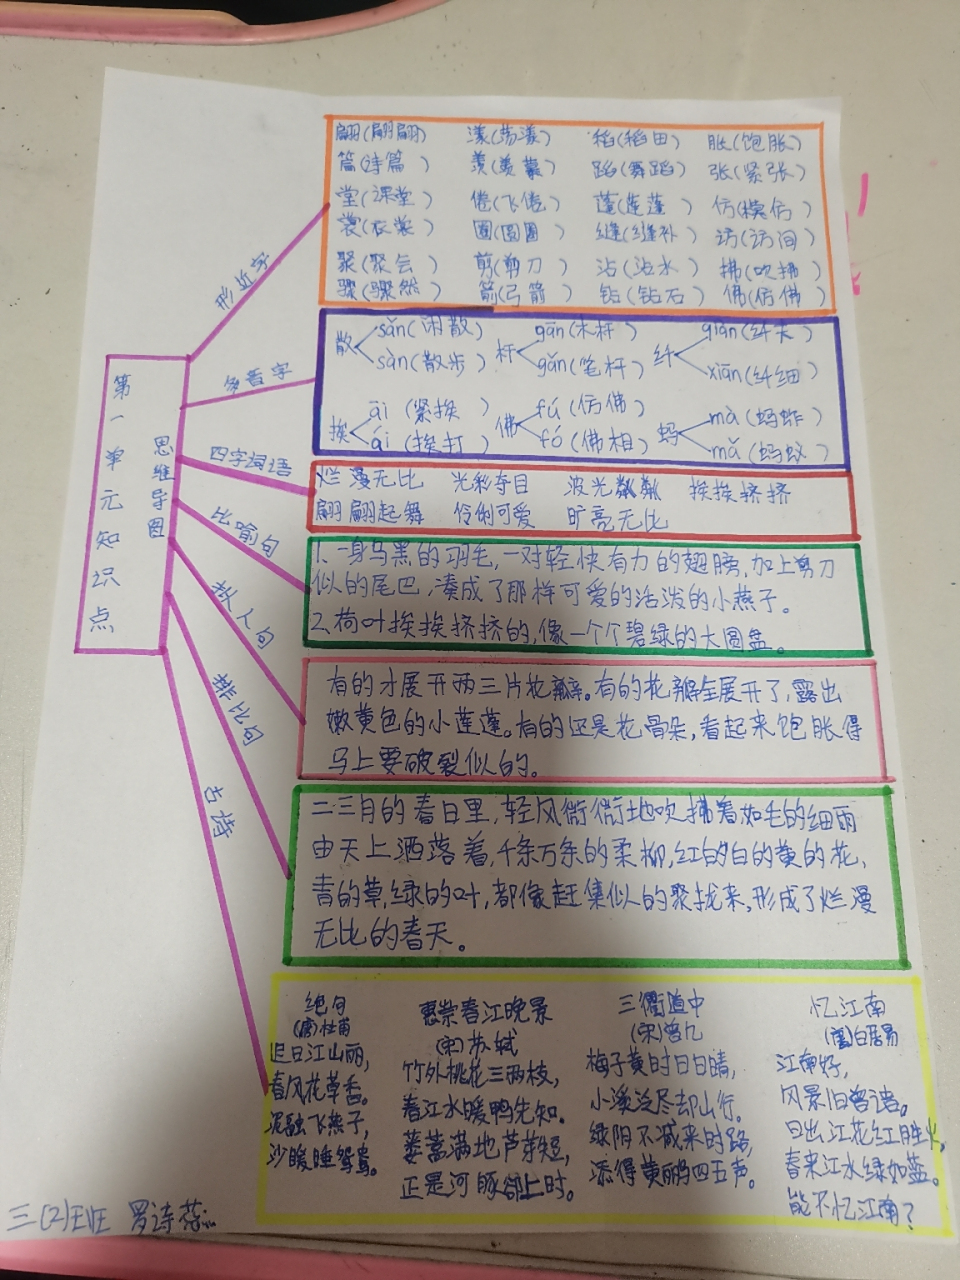 第一单元知识点
思维导图
形近字
翩(翩翩) 漾(荡漾) 稻(稻田) 胀(饱胀)
篇(诗篇) 羡(羡慕) 蹈(舞蹈) 张(紧张)
堂(课堂) 倦(飞倦) 蓬(莲蓬) 仿(模仿)
裳(衣裳) 圈(圆圈) 缝(缝补) 访(访问)
聚(聚会) 剪(剪刀) 沾(沾水) 拂(吹拂)
骤(骤然) 箭(弓箭) 钻(钻石) 佛(仿佛)
多音字
散 sǎn(闲散) sàn(散步) 杆 gān(木杆) gǎn(笔杆) 纤 qiàn(纤夫) xiān(纤细)
挨 āi(紧挨) ái(挨打) 佛 fú(仿佛) fó(佛相) 蚂 mà(蚂蚱) mǎ(蚂蚁)
四字词语
烂漫无比 光彩夺目 波光粼粼 挨挨挤挤
翩翩起舞 伶俐可爱 旷亮无比
比喻句
1.一身乌黑的羽毛,一对轻快有力的翅膀,加上剪刀
似的尾巴,凑成了那样可爱的活泼的小燕子。
2.荷叶挨挨挤挤的,像一个个碧绿的大圆盘。
拟人句
有的才展开两三片花瓣。有的花瓣全展开了,露出
嫩黄色的小莲蓬。有的还是花骨朵,看起来饱胀得
马上要破裂似的。
排比句
二三月的春日里,轻风微微地吹拂着如毛的细雨
由天上洒落着,千条万条的柔柳,红的白的黄的花,
青的草,绿的叶,都像赶集似的聚拢来,形成了烂漫
无比的春天。
古诗
绝句
(唐)杜甫
迟日江山丽,
春风花草香。
泥融飞燕子,
沙暖睡鸳鸯。
惠崇春江晚景
(宋)苏轼
竹外桃花三两枝,
春江水暖鸭先知。
蒌蒿满地芦芽短,
正是河豚欲上时。
三衢道中
(宋)曾几
梅子黄时日日晴,
小溪泛尽却山行。
绿阴不减来时路,
添得黄鹂四五声。
忆江南
(唐)白居易
江南好,
风景旧曾谙。
日出江花红胜火,
春来江水绿如蓝。
能不忆江南?
三(2)班 罗诗蕊